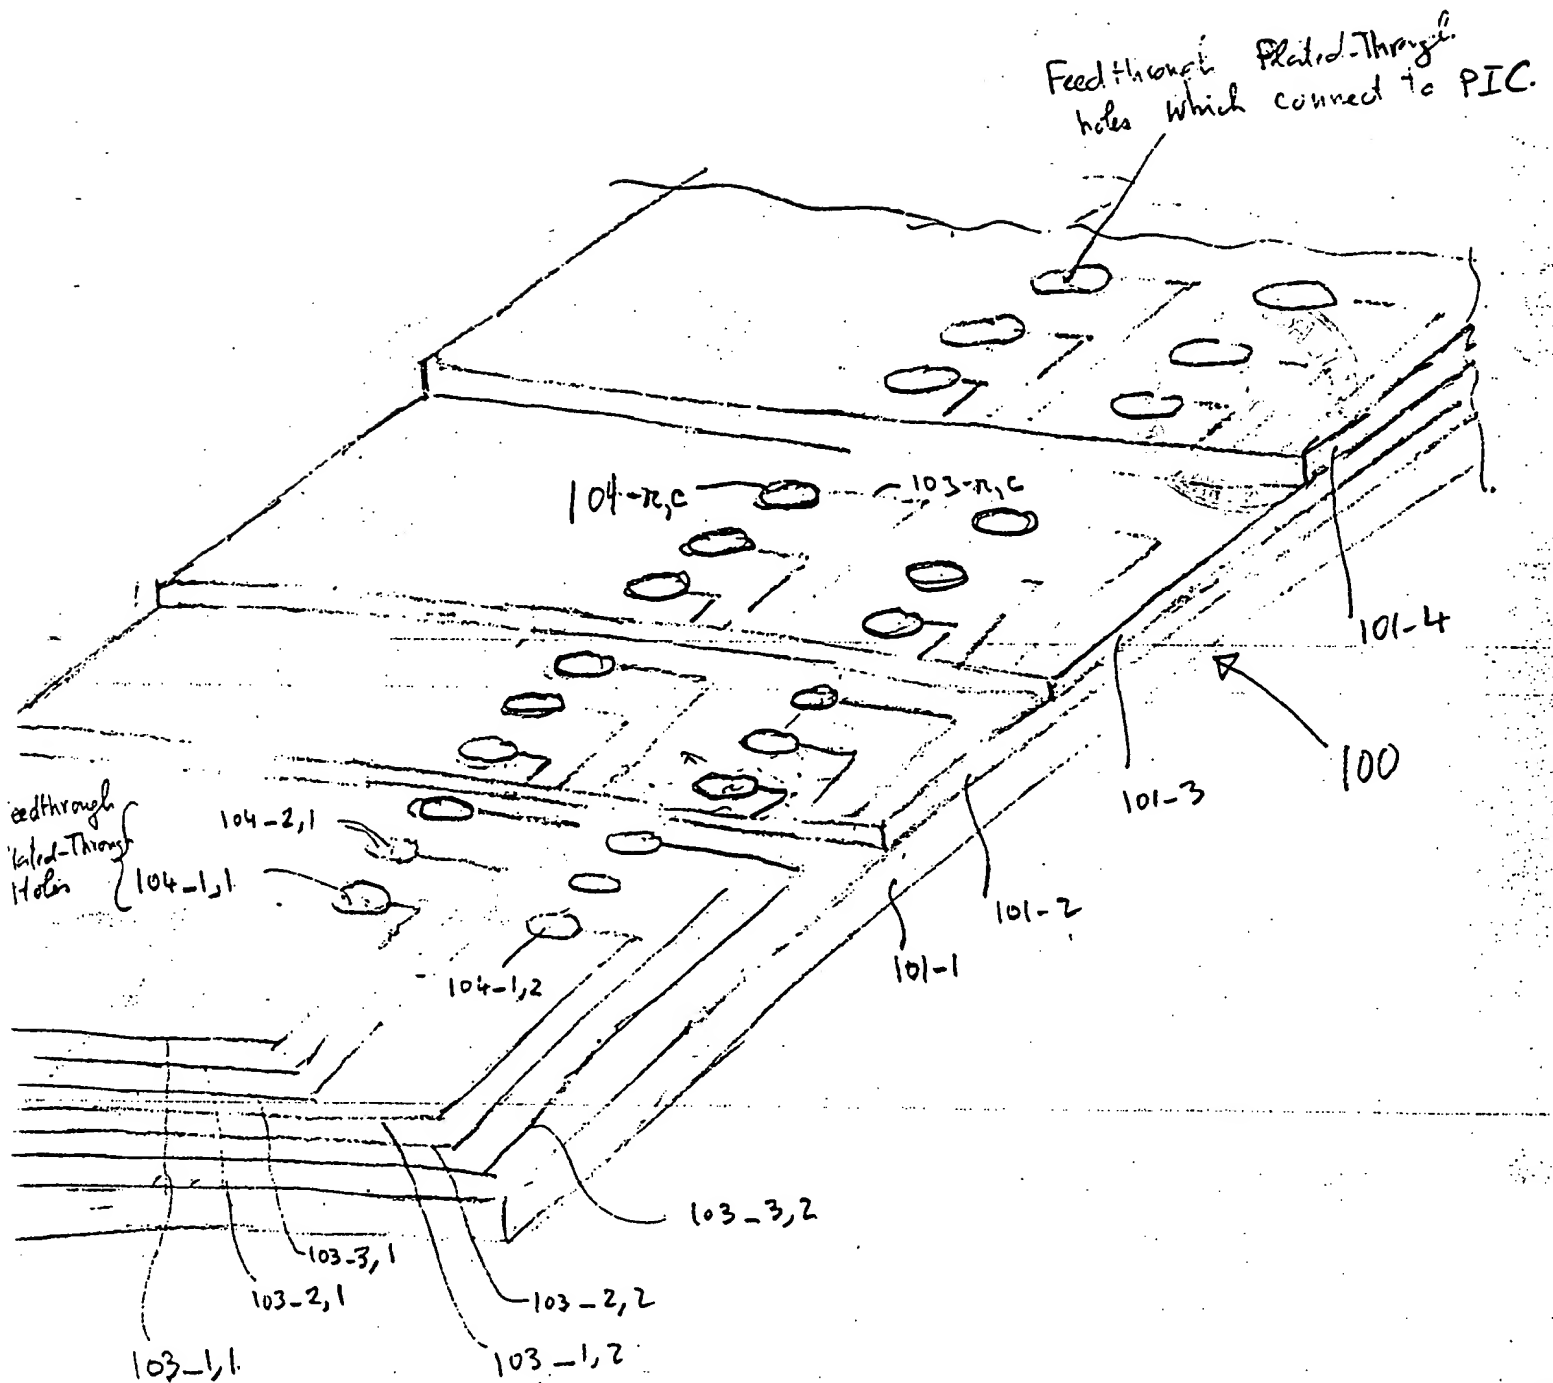 Feedthrough Plated-Through
holes which connect to PIC.
104-r,c
103-r,c
101-4
100
101-3
eedthrough
lated-Through
Holes
104-2,1
104-1,1
101-2
101-1
104-1,2
103-3,2
103-3,1
103-2,1
103-2,2
103-1,2
103-1,1